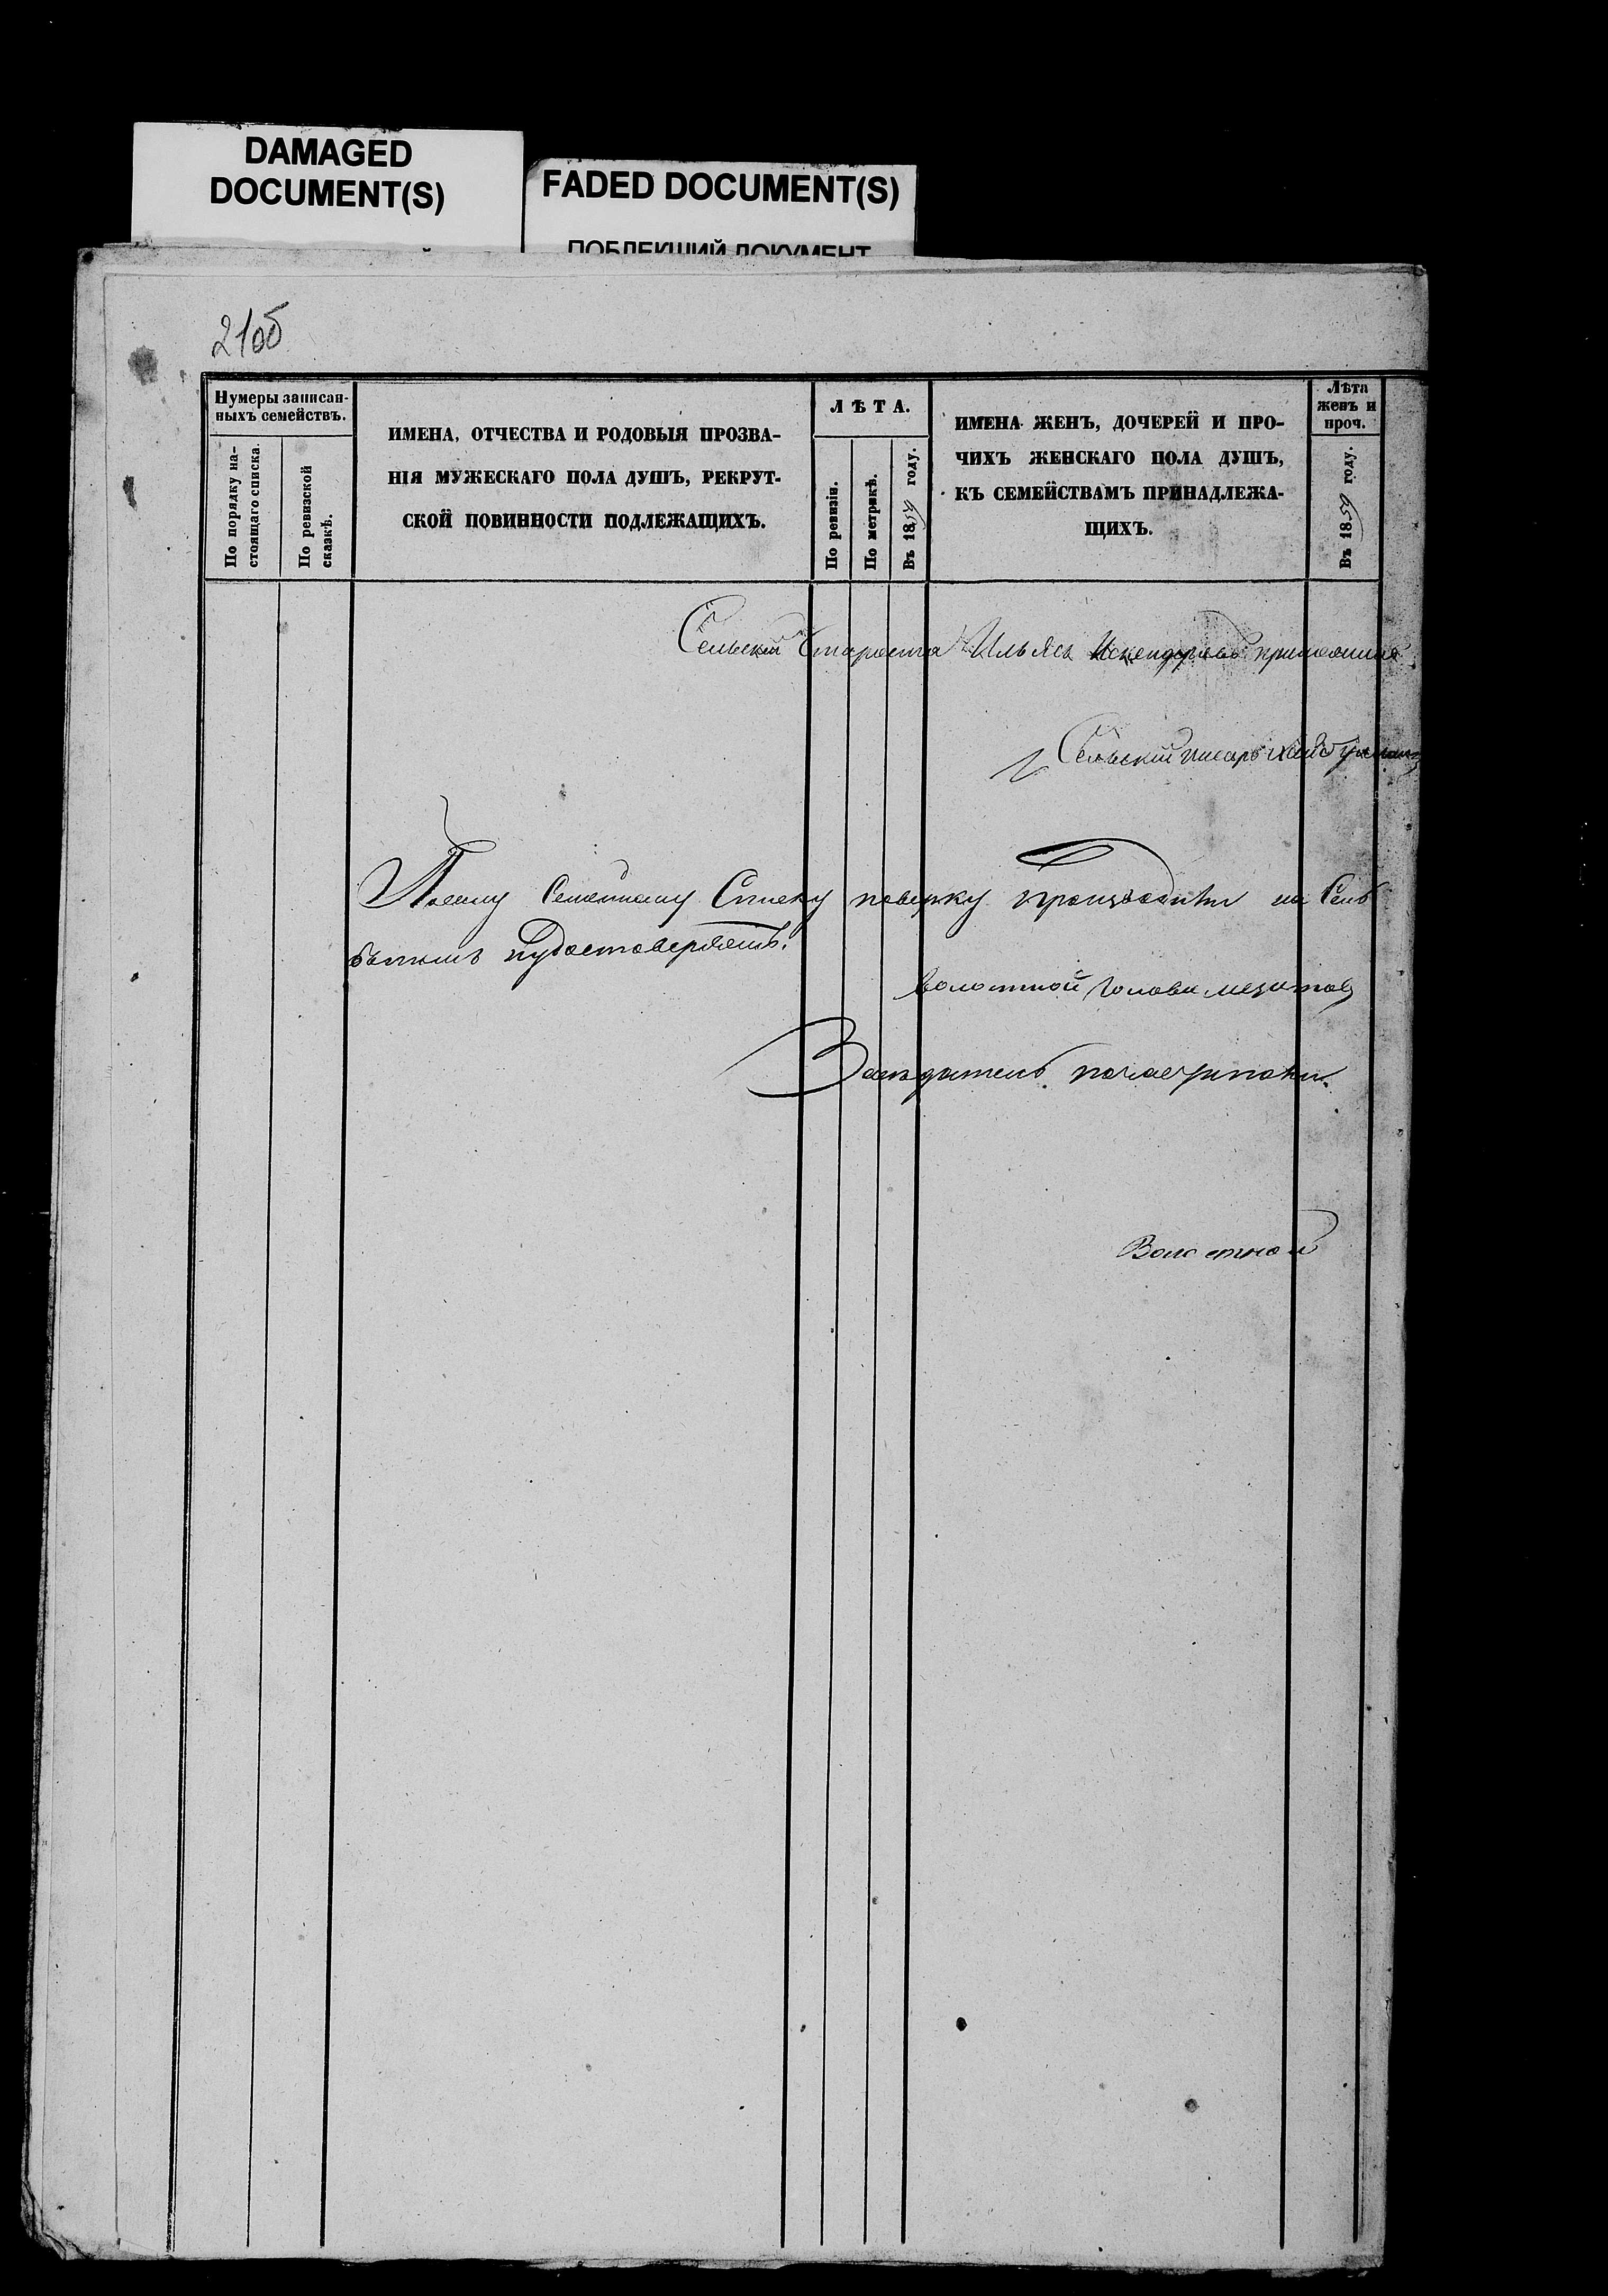 DAMAGED
DOCUMENT(S)
FADED DOCUMENT(S)
ПОБЛЕКШИЙ ДОКУМЕНТ
21об
Нумеры записан-
ныхъ семействъ.
По порядку на-
стоящаго списка.
По ревизской
сказкѣ.
ИМЕНА, ОТЧЕСТВА И РОДОВЫЯ ПРОЗВА-
НІЯ МУЖЕСКАГО ПОЛА ДУШЪ, РЕКРУТ-
СКОЙ ПОВИННОСТИ ПОДЛЕЖАЩИХЪ.
ЛѢТА.
По ревизіи.
По метрикѣ.
Въ 1859 году.
ИМЕНА ЖЕНЪ, ДОЧЕРЕЙ И ПРО-
ЧИХЪ ЖЕНСКАГО ПОЛА ДУШЪ,
КЪ СЕМЕЙСТВАМЪ ПРИНАДЛЕЖА-
ЩИХЪ.
Лѣта
женъ и
проч.
Въ 1859 году.
Сельскій Староста Ильясъ Искендеровъ
Сельскій писарь
Посему Семейному Списку поверку производили
удостоверяемъ.
волостной голова
Заседатель
Волостной